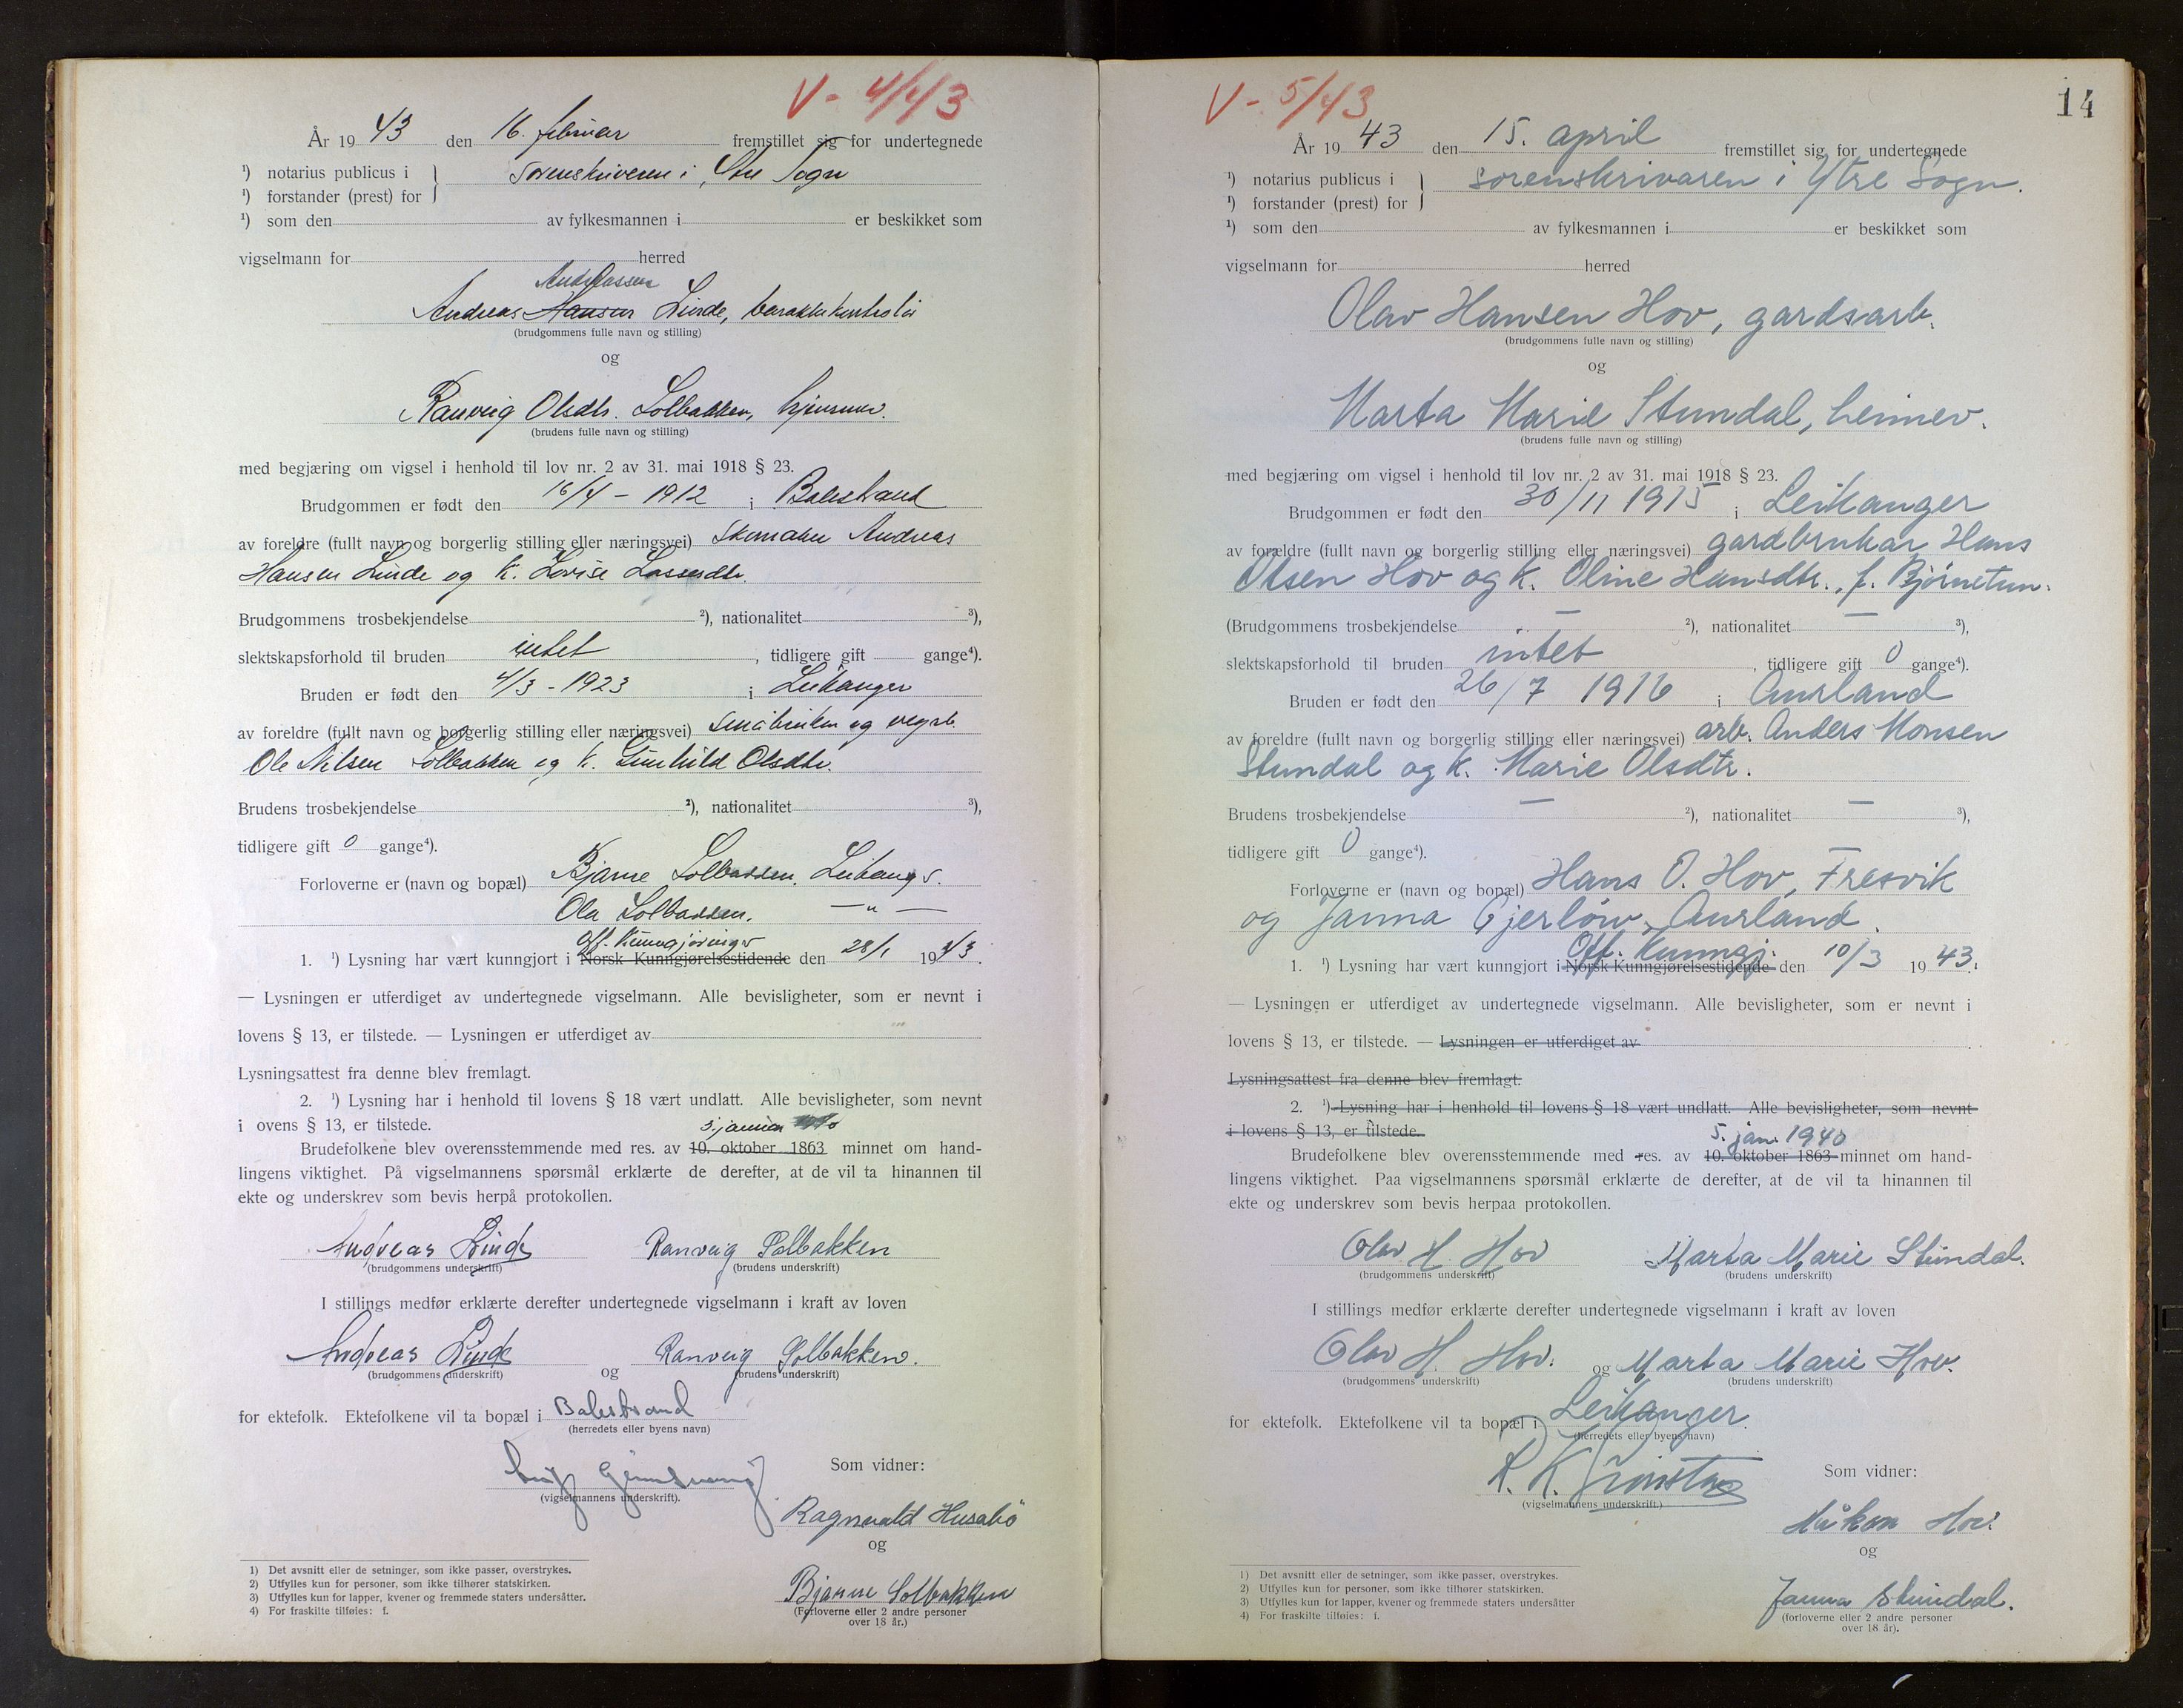 V - 4/43
År 1943 den 16. februar fremstillet sig for undertegnede
¹) notarius publicus i
sorenskriveren i Ytre Sogn
¹) forstander (prest) for
¹) som den av fylkesmannen i er beskikket som
vigselmann for herred
Andreassen
Andreas Hansen Linde, barakkekontrolør
(brudgommens fulle navn og stilling)
og
Ranveig Olsdtr. Solbakken, hjemmev.
(brudens fulle navn og stilling)
med begjæring om vigsel i henhold til lov nr. 2 av 31. mai 1918 § 23.
Brudgommen er født den 16/4 - 1912 i Balestrand
av foreldre (fullt navn og borgerlig stilling eller næringsvei) skomaker Andreas
Hansen Linde og k. Lovise Lassesdtr.
Brudgommens trosbekjendelse ²), nationalitet ³),
slektskapsforhold til bruden intet, tidligere gift gange⁴).
Bruden er født den 4/3 - 1923 i Leikanger
av foreldre (fullt navn og borgerlig stilling eller næringsvei) småbruker og vegarb.
Ole Nilsen Solbakken og k. Gunhild Olsdtr.
Brudens trosbekjendelse ²), nationalitet ³),
tidligere gift 0 gange⁴).
Forloverne er (navn og bopæl) Bjarne Solbakken, Leikanger.
Ola Solbakken. — " —
off. Kunngjøringer
1. ¹) Lysning har vært kunngjort i Norsk Kunngjørelsestidende den 28/1 1943.
— Lysningen er utferdiget av undertegnede vigselmann. Alle bevisligheter, som er nevnt i
lovens § 13, er tilstede. — Lysningen er utferdiget av
Lysningsattest fra denne blev fremlagt.
2. ¹) Lysning har i henhold til lovens § 18 vært undlatt. Alle bevisligheter, som nevnt
i ovens § 13, er tilstede.
5. januar
Brudefolkene blev overensstemmende med res. av 10. oktober 1863 minnet om hand-
lingens viktighet. På vigselmannens spørsmål erklærte de derefter, at de vil ta hinannen til
ekte og underskrev som bevis herpå protokollen.
Andreas Linde Ranveig Solbakken
(brudgommens underskrift) (brudens underskrift)
I stillings medfør erklærte derefter undertegnede vigselmann i kraft av loven
Andreas Linde og Ranveig Solbakken.
(brudgommens underskrift) (brudens underskrift)
for ektefolk. Ektefolkene vil ta bopæl i Balestrand
(herredets eller byens navn)
Som vidner:
(vigselmannens underskrift).
Ragnvald Husabö
og
Bjarne Solbakken
(Forloverne eller 2 andre personer
over 18 år.)
1) Det avsnitt eller de setninger, som ikke passer, overstrykes.
2) Utfylles kun for personer, som ikke tilhører statskirken.
3) Utfylles kun for lapper, kvener og fremmede staters undersåtter.
4) For fraskilte tilføies: f.
14
V - 5/43
År 1943 den 15. april fremstillet sig for undertegnede
¹) notarius publicus i
sorenskrivaren i Ytre Sogn.
¹) forstander (prest) for
¹) som den av fylkesmannen i er beskikket som
vigselmann for herred
Olav Hansen Hov, gardsarb.
(brudgommens fulle navn og stilling)
og
Marta Marie Stundal, heimev.
(brudens fulle navn og stilling)
med begjæring om vigsel i henhold til lov nr. 2 av 31. mai 1918 § 23.
Brudgommen er født den 30/11 1915 i Leikanger
av forældre (fullt navn og borgerlig stilling eller næringsvei) gardbrukar Hans
Olsen Hov og k. Oline Hansdtr., f. Bjørnetun.
(Brudgommens trosbekjendelse — ²), nationalitet — ³),
slektskapsforhold til bruden intet, tidligere gift 0 gange⁴).
Bruden er født den 26/7 1916 i Aurland
av foreldre (fullt navn og borgerlig stilling eller næringsvei) arb. Anders Monsen
Stundal og k. Marie Olsdtr.
Brudens trosbekjendelse — ²), nationalitet — ³),
tidligere gift 0 gange⁴).
Forloverne er (navn og bopæl) Hans O. Hov, Fresvik
og Janna Gjerløw, Aurland.
Off. Kunngj.
1. ¹) Lysning har vært kunngjort i Norsk Kunngjørelsestidende den 10/3 1943.
— Lysningen er utferdiget av undertegnede vigselmann. Alle bevisligheter, som er nevnt i
lovens § 13, er tilstede. — Lysningen er utferdiget av
Lysningsattest fra denne blev fremlagt.
2. ¹) Lysning har i henhold til lovens § 18 vært undlatt. Alle bevisligheter, som nevnt
i lovens § 13, er tilstede.
5. jan. 1940
Brudefolkene blev overensstemmende med res. av 10. oktober 1863 minnet om hand-
lingens viktighet. Paa vigselmannens spørsmål erklærte de derefter, at de vil ta hinannen til
ekte og underskrev som bevis herpaa protokollen.
Olav H. Hov Marta Marie Stundal.
(brudgommens underskrift) (brudens underskrift)
I stillings medfør erklærte derefter undertegnede vigselmann i kraft av loven
Olav H. Hov. og Marta Marie Hov.
(brudgommens underskrift) (brudens underskrift)
for ektefolk. Ektefolkene vil ta bopæl i Leikanger.
(herredets eller byens navn)
R. K.
Som vidner:
(vigselmannens underskrift.)
Håkon Hov.
og
Janna Stundal.
(forloverne eller 2 andre personer
over 18 år).
1) Det avsnitt eller de setninger, som ikke passer, overstrykes.
2) Utfylles kun for personer, som ikke tilhører statskirken.
3) Utfylles kun for lapper, kvener og fremmede staters undersåtter
4) For fraskilte tilføies: f.